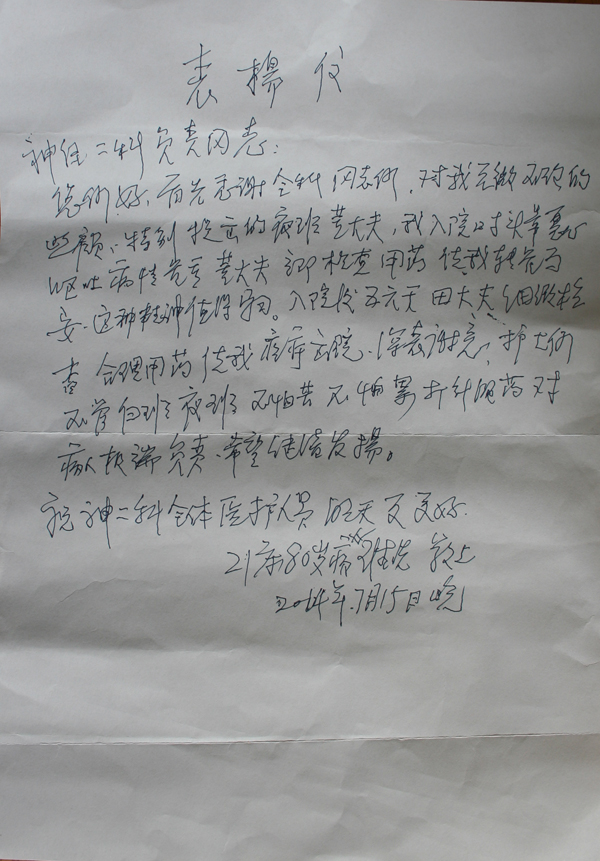 表揚信
神经二科负责同志：
您们好，首先感谢全科同志们，对我无微不至的
照顾，特别提出的夜班黄大夫，我入院时头晕恶心
呕吐病情危重黄大夫立即检查用药使我转危为
安，这种精神值得学习。入院后五六天田大夫细微检
查合理用药使我痊疗出院，深表谢意，护士们
不管白班夜班不怕苦不怕累打针喂药对
病人极端负责，希望继续发揚。
祝神二科全体医护人员明天更美好。
21床80岁病
敬上
2014年7月15日晚